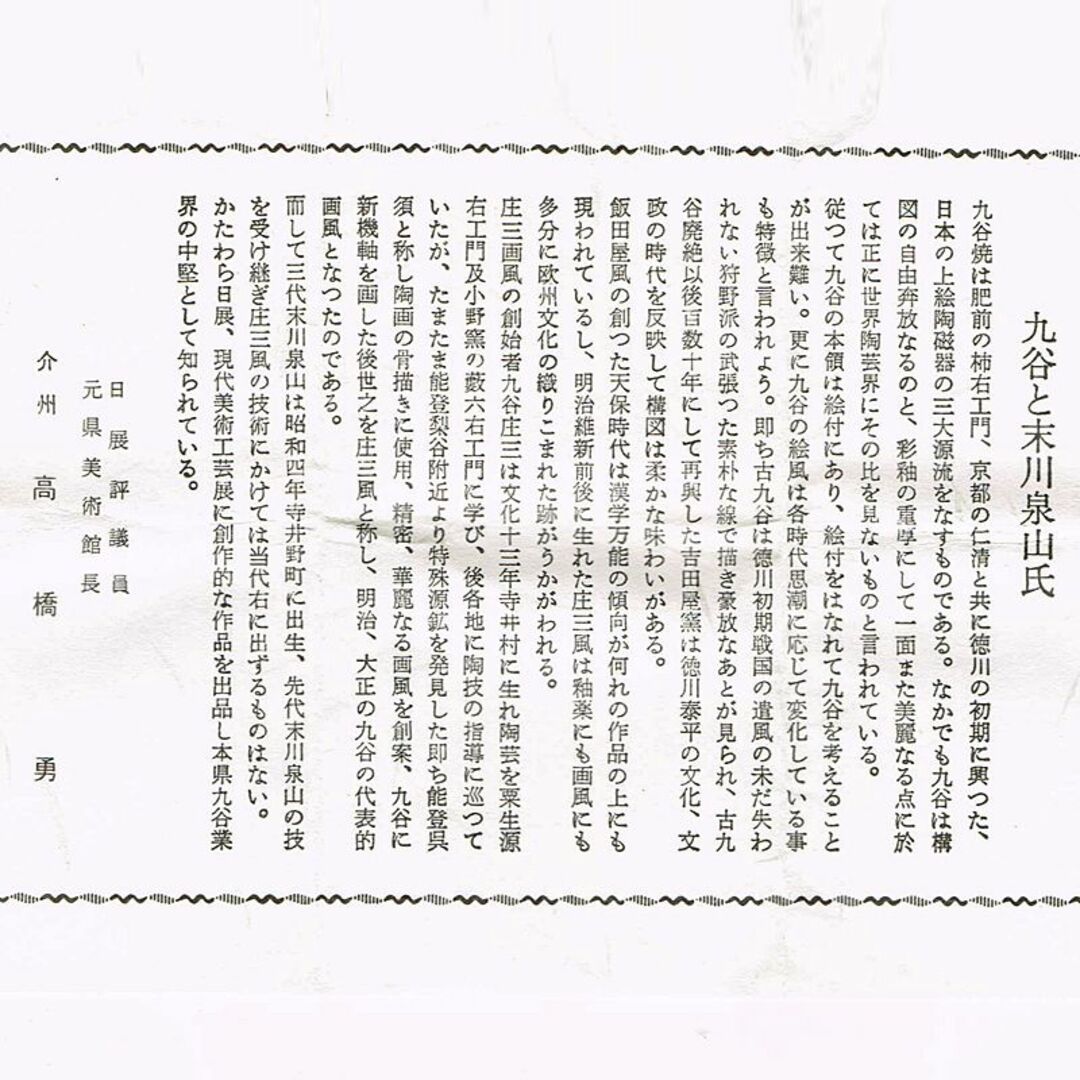 九谷と末川泉山氏
九谷焼は肥前の柿右エ門、京都の仁清と共に徳川の初期に興つた、
日本の上絵陶磁器の三大源流をなすものである。なかでも九谷は構
図の自由奔放なるのと、彩釉の重厚にして一面また美麗なる点に於
ては正に世界陶芸界にその比を見ないものと言われている。
従つて九谷の本領は絵付にあり、絵付をはなれて九谷を考えること
が出来難い。更に九谷の絵風は各時代思潮に応じて変化している事
も特徴と言われよう。即ち古九谷は徳川初期戦国の遺風の未だ失わ
れない狩野派の武張つた素朴な線で描き豪放なあとが見られ、古九
谷廃絶以後百数十年にして再興した吉田屋窯は徳川泰平の文化、文
政の時代を反映して構図は柔かな味わいがある。
飯田屋風の創つた天保時代は漢学万能の傾向が何れの作品の上にも
現われているし、明治維新前後に生れた庄三風は釉薬にも画風にも
多分に欧州文化の織りこまれた跡がうかがわれる。
庄三画風の創始者九谷庄三は文化十三年寺井村に生れ陶芸を粟生源
右エ門及小野窯の薮六右エ門に学び、後各地に陶技の指導に巡つて
いたが、たまたま能登梨谷附近より特殊源鉱を発見した即ち能登呉
須と称し陶画の骨描きに使用、精密、華麗なる画風を創案、九谷に
新機軸を画した後世之を庄三風と称し、明治、大正の九谷の代表的
画風となつたのである。
而して三代末川泉山は昭和四年寺井野町に出生、先代末川泉山の技
を受け継ぎ庄三風の技術にかけては当代右に出ずるものはない。
かたわら日展、現代美術工芸展に創作的な作品を出品し本県九谷業
界の中堅として知られている。
日展評議員
元県美術館長
介州 高橋 勇